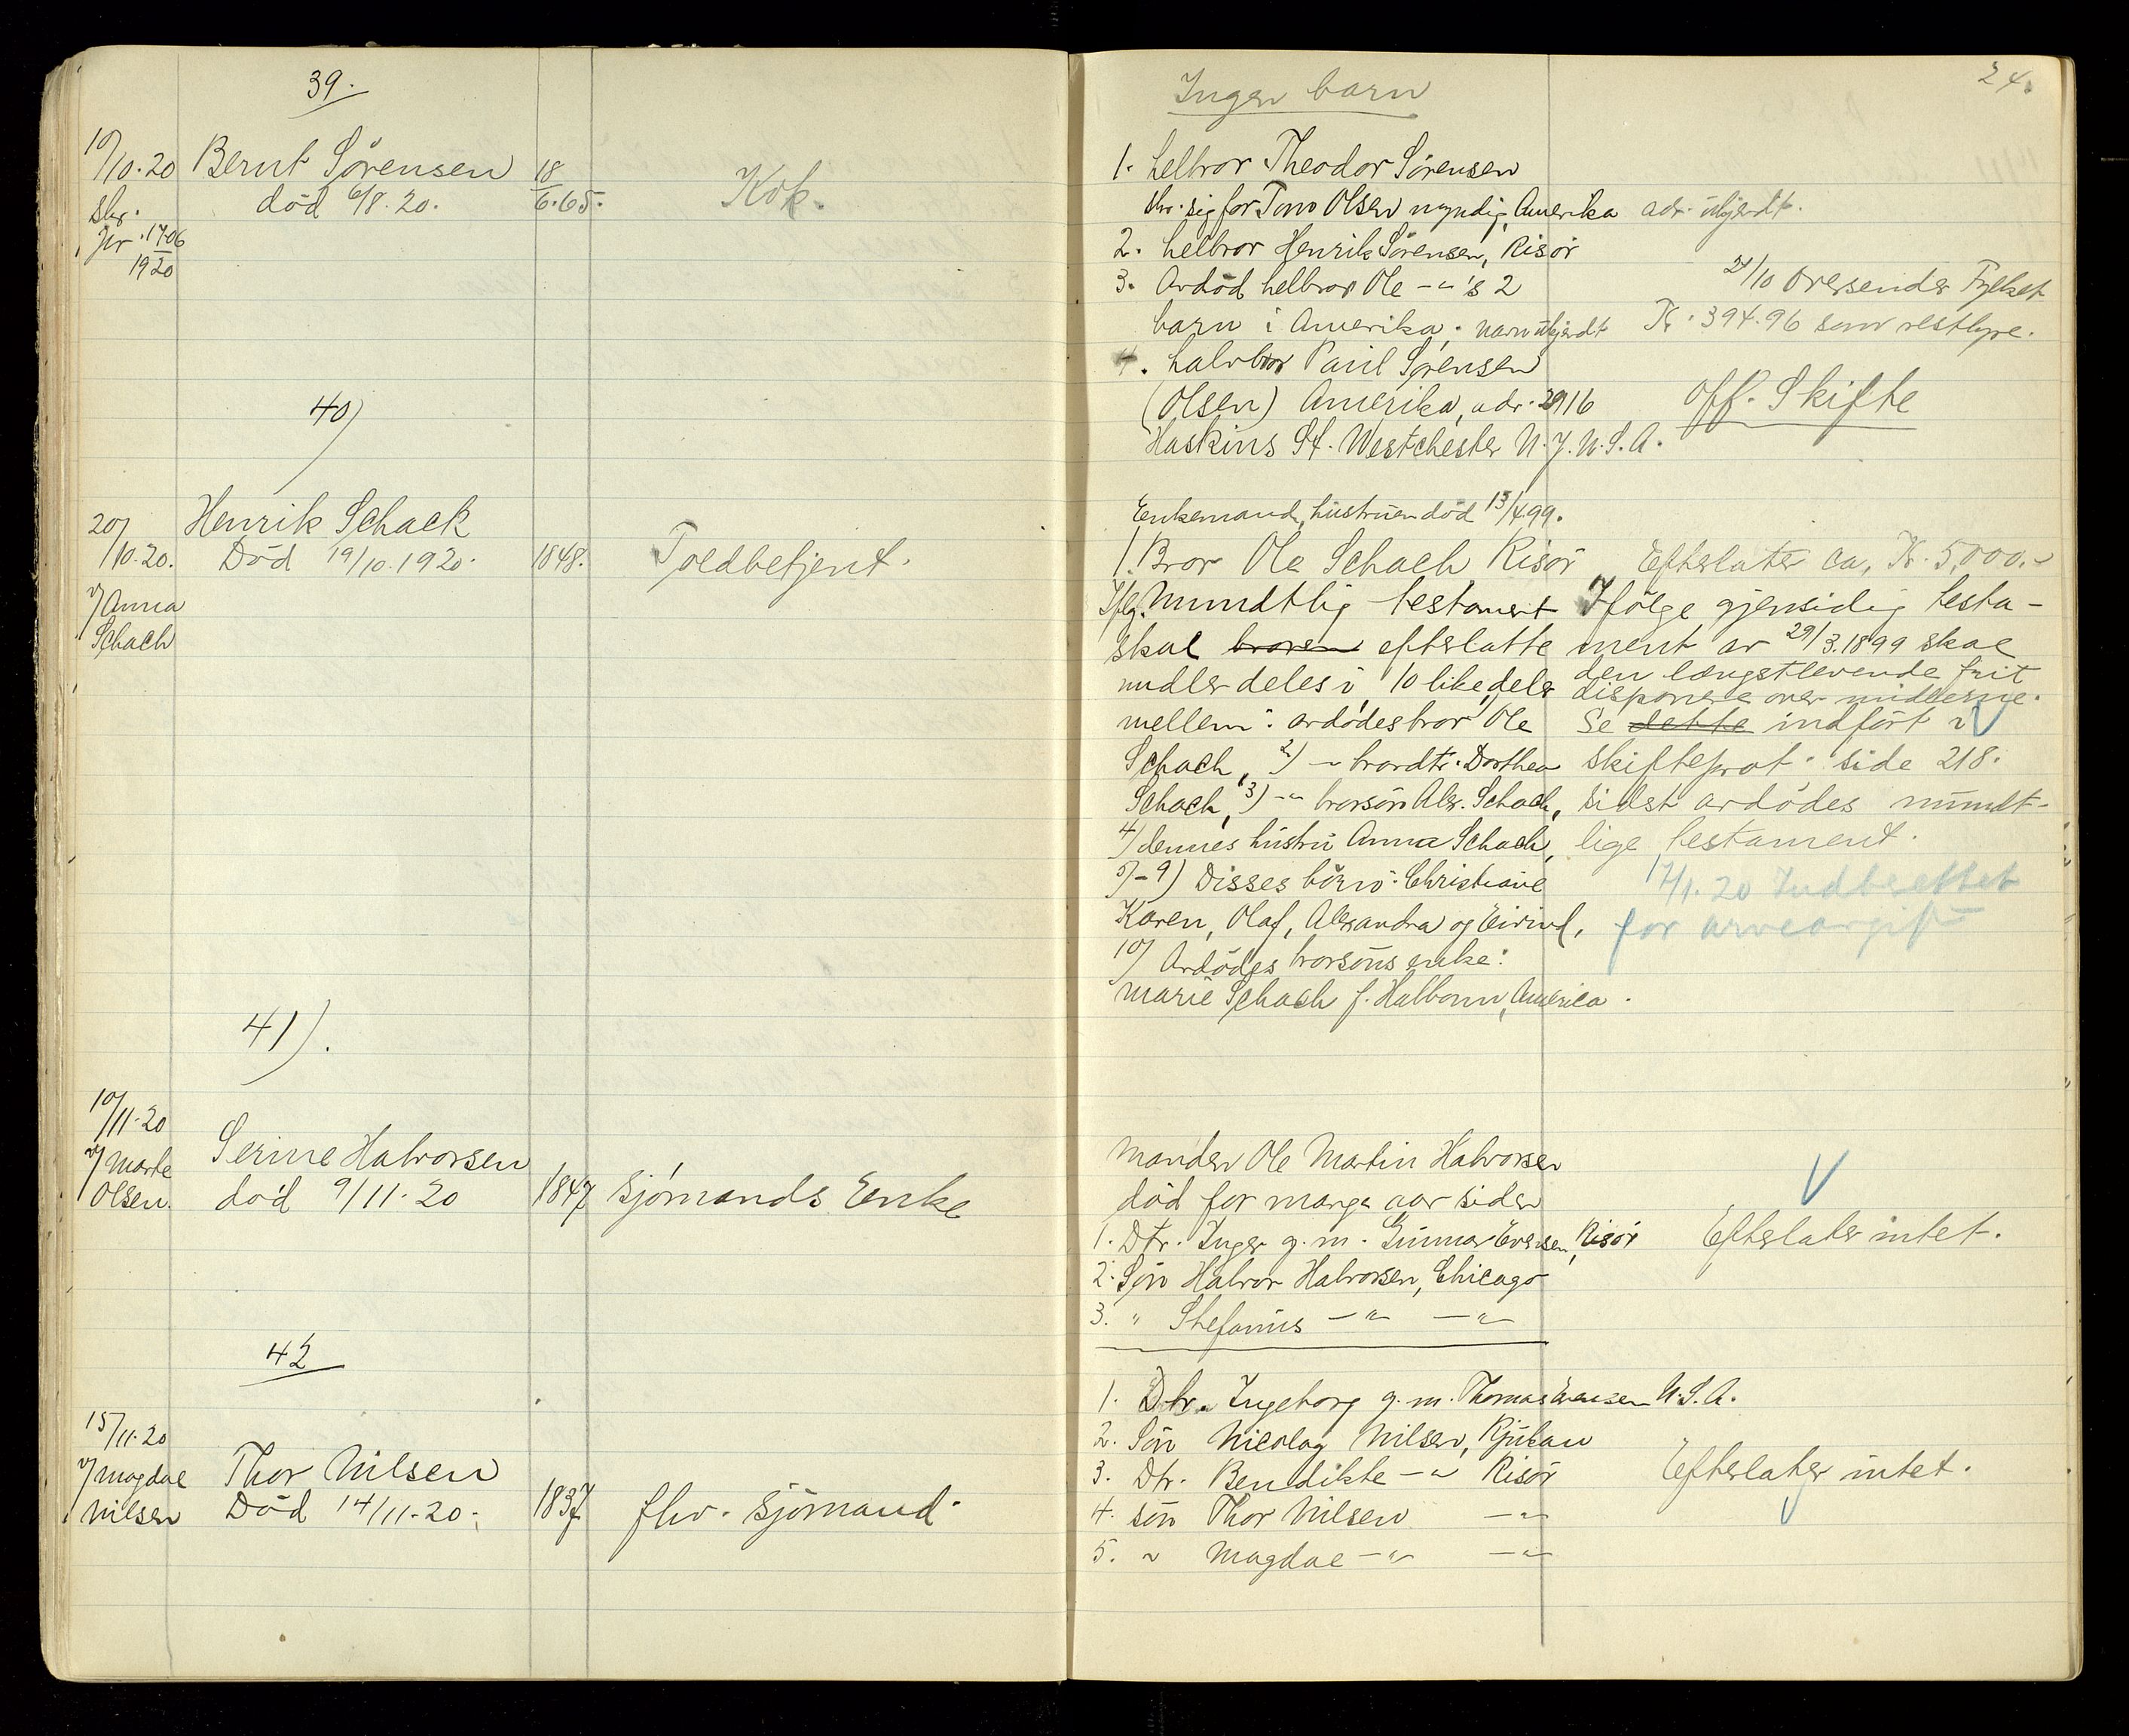 39.
10/10.20 Bernt Sörensen 18/6.65. Kok.
død 6/8.20.
skr.
Jnr. 1706
1920
40)
20/10.20. Henrik Schack 1848. Toldbetjent.
Død 19/10.1920.
v/ Anna
Schach
41).
10/11.20
v/ Marte Serine Halvorsen
Olsen. död 9/11.20 1847 Sjömands Enke
42
15/11.20
v/ Magdal Thor Nilsen
Nilsen Død 14/11.20. 1837 fhv. sjömand.
24.
Ingen barn
1. helbror Theodor Sörensen
skr. sig for Tom Olsen myndig, Amerika adr. ukjendt.
2. helbror Henrik Sörensen, Risör
3. Avdöd helbror Ole -"-'s 2
barn i Amerika. navn ukjendt
21/10 oversender Fylket
Kr. 394.96 som resthyre.
4. halvbror Paul Sørensen
(Olsen) Amerika, adr. 2916
Haskins St. Westchester N.J. U.S.A.
Off. Skifte
Enkemand, hustruen död 13/4 99.
1. Bror Ole Schach Risör Efterlater ca. Kr. 5,000.-
Iflg. Mundtlig testament
skal broren efterlatte
midler deles i 10 like deler
mellem: avdödes bror Ole
Schach, 2) -"- brordtr. Dorthea
Schach, 3) -"- brorsön Alex. Schach,
4) dennes hustru Anna Schach,
5)-9) Disses börn: Christiane
Karen, Olaf, Alexandra og Eivind,
10) Avdödes brorsöns enke:
Marie Schach f. Halborn, America.
Ifölge gjensidig testa-
ment av 29/3.1899 skal
den længstlevende frit
disponere over midlerne.
Se dette indfört i
skifteprot. side 218.
sidst avdödes mundt-
lige testament.
7/1.20 Indberettet
for arveavgift
Manden Ole Martin Halvorsen
död for mange aar siden
1. Dtr. Inger g.m. Gunnar Evensen, Risör Efterlater intet.
2. Sön Halvor Halvorsen, Chicago
3. " Stefanus -"- -"-
1. Dtr. Ingeborg g.m. Thomas Evensen U.S.A.
2. Sön Nicolay Nilsen, Rjukan
3. Dtr. Bendikte -"- Risör Efterlater intet.
4. sön Thor Nilsen -"-
5. " Magdal -"- -"-